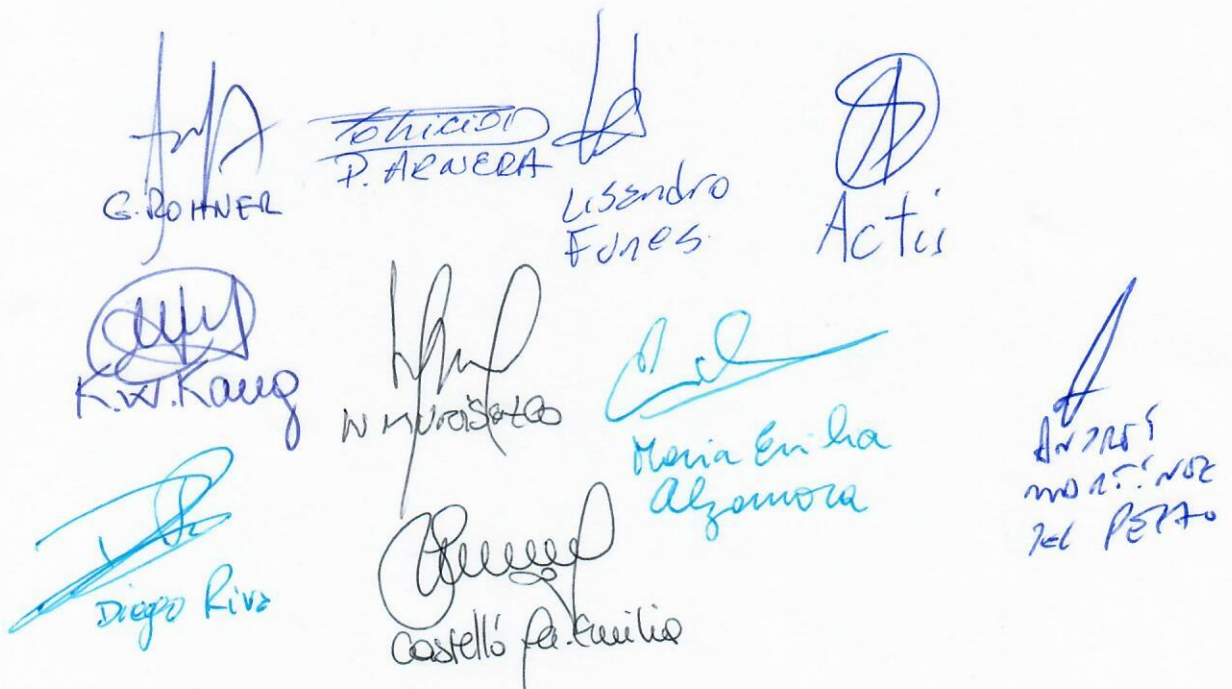 G. ROHNER
Patricia
P. ARNERA
Lisandro
Funes
Actis
K.W. Kang
Maria Emilia
Alzamora
ANDRÉS
MARTÍNEZ
DEL PEZZO
Diego Riva
Castelló Ma. Emilia